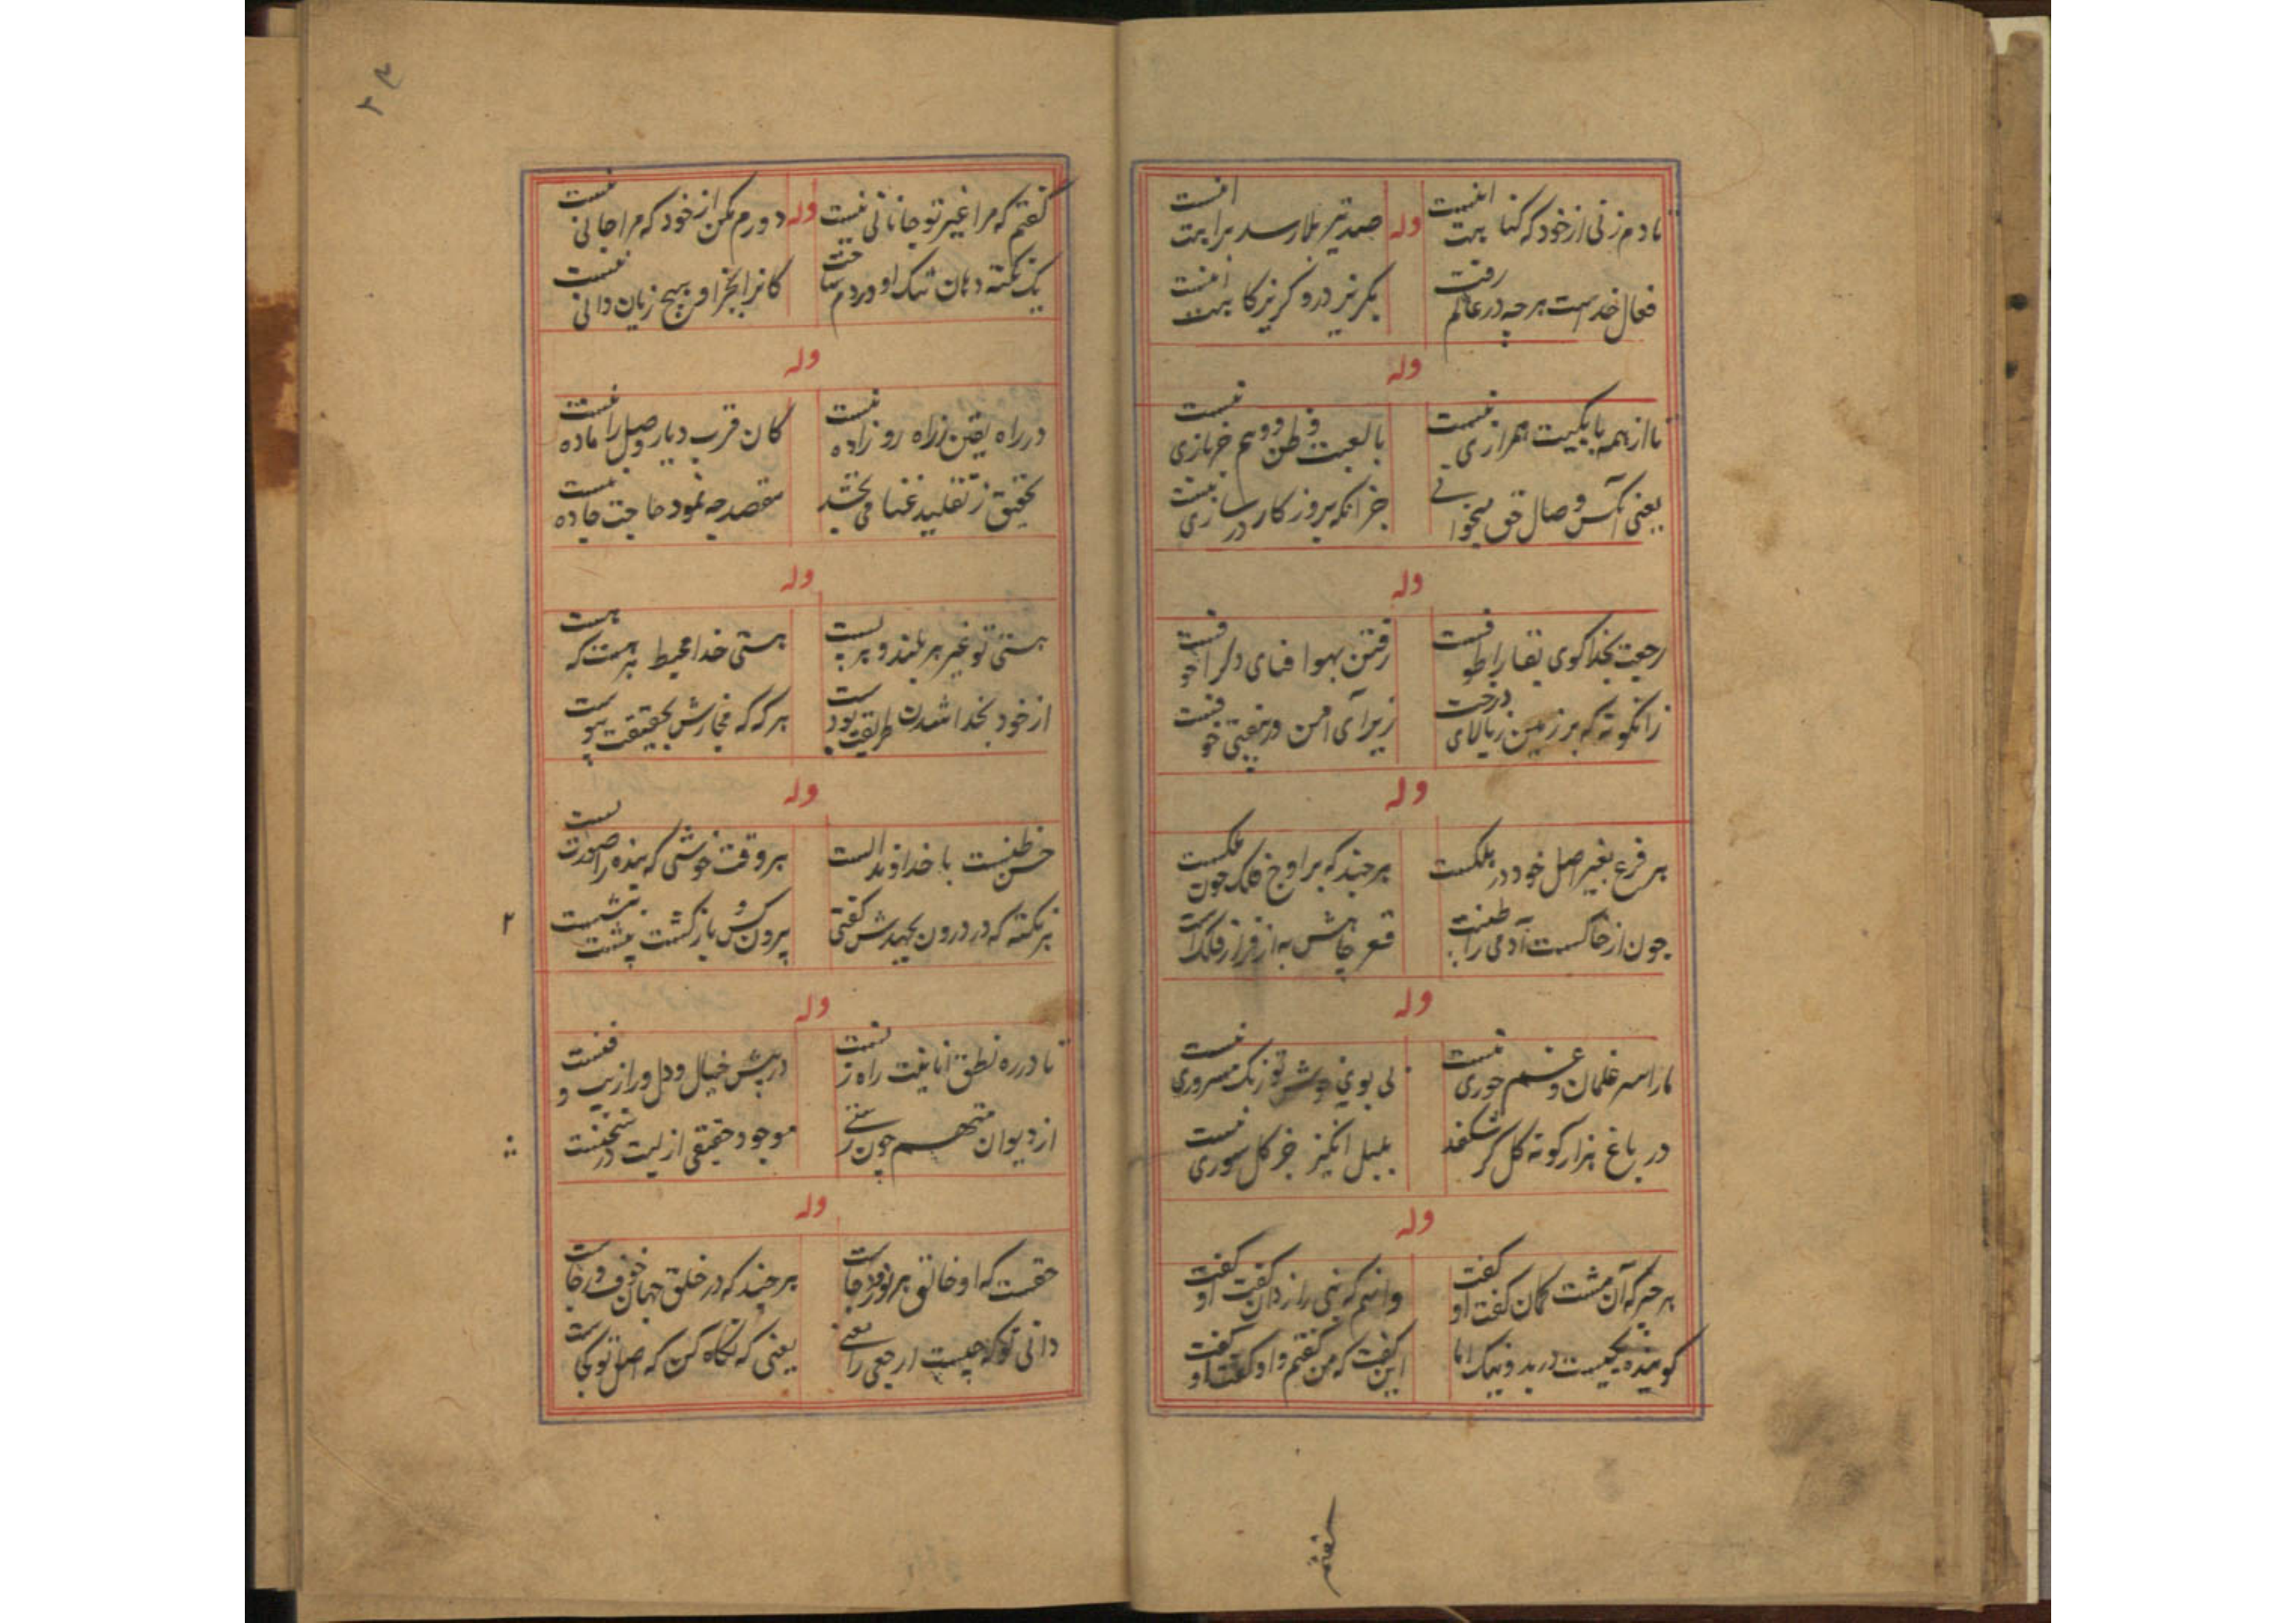 تا دم زنی از خود که گناهیت اینست
وله
صد تیر بلا رسد برایت اینست
فعال خداست هرچه در عالم رفت
بگریز درو گریزگاهیت اینست
وله
ما از همه با یکیت همرازی نیست
با لعبت و ظن و وهم خربازی نیست
یعنی آنکس وصال حق میخوانی
جز آنکه بروز کار در سازی نیست
وله
رجعت بخدا کوی بقا را طوفست
رفتن بهوا فنای دگر را خوفست
زانگونه که بر زمین ز بالای درخت
زیرآی امن و نیفتی خوفست
وله
هر فرع بغیر اصل خود در هلکست
هرچند که بر اوج فلک چون ملکست
چون از خاکست آدمی را طینت
قعر چاهش به از فراز فلک است
وله
ما را سر غلمان و غم حوری نیست
بی بوی خوش تو رنگ مسروری نیست
در باغ هزار گونه گل گر شکفد
بلبل انگیز جز گل سوری نیست
وله
هر چیز که آن مشت گمان گفت او گفت
وانهم که نبی راز دان گفت او گفت
گوینده یکیست در بد و نیک اما
این گفت که من گفتم و او گفت او گفت
گفتم
گفتم که مرا غیر تو جانانی نیست
وله
دورم مکن از خود که مرا جانی نیست
یک نکته دهان تنگ او در دم ساخت
کانرا بجز او هیچ زبان دانی نیست
وله
در راه یقین زراه رو زاده نیست
کان قرب دیار وصل را ماده نیست
تحقیق ز تقلید غنا می بخشد
مقصد چه نمود حاجت جاده نیست
وله
هستی تو غیر هر بلند و هر پست
هستی خدا محیط هر هست که هست
از خود بخدا شدن طریقت بودست
هر که که مجازش بحقیقت پیوست
وله
حسن ظنست با خداوند الست
هر وقت خوشی که بنده را صورت بست
هر نکته که در درون بجهدش گفتی
بیرون کس و باز گشت پشت
۲
وله
تا در ره نطق انانیت راه زنست
در پیش خیال و دل ورا زیب و فنست
از دیوان متهم چون رستی
موجود حقیقی ازلیت در سخنست
وله
حقست که او خالق هر نور و دجاست
هرچند که در خلق جهان خوف و رجاست
دانی تو که چیست ارجعی را معنی
یعنی که نگاه کن که اصل تو کجاست